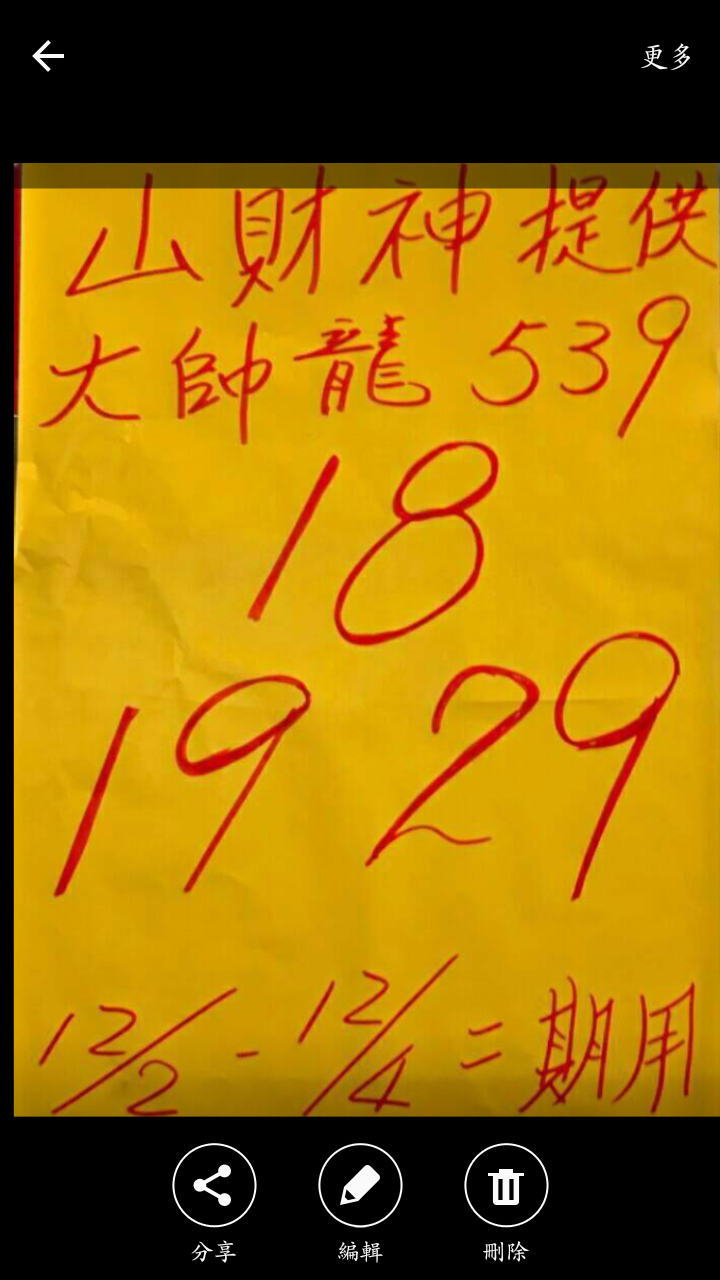 更多
山財神提供
大帥龍 539
18
19 29
12/2 - 12/4 二期用
分享 編輯 刪除